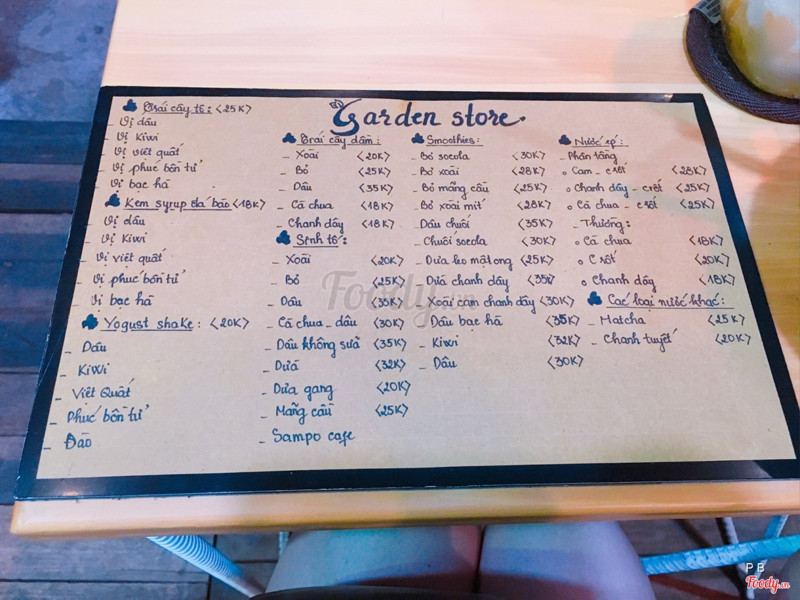 Garden store.
Trái cây tô: <25K>
- Vị dâu
- Vị Kiwi
- Vị việt quất
- Vị phúc bồn tử
- Vị bạc hà
Kem syrup đá bào <18K>
- Vị dâu
- Vị Kiwi
- Vị việt quất
- Vị phúc bồn tử
- Vị bạc hà
Yogust shake: <20K>
- Dâu
- Kiwi
- Việt Quất
- Phúc bồn tử
- Đào
Trái cây dầm:
- Xoài <20K>
- Bơ <25K>
- Dâu <35K>
- Cà chua <18K>
- Chanh dây <18K>
Sinh tố:
- Xoài <20K>
- Bơ <25K>
- Dâu <30K>
- Cà chua - dâu <30K>
- Dâu không sữa <35K>
- Dừa <32K>
- Dưa gang <20K>
- Mãng cầu <25K>
- Sampo cafe
Smoothies:
- Bơ socola <30K>
- Bơ xoài <28K>
- Bơ mãng cầu <25K>
- Bơ xoài mít <28K>
- Dâu chuối <35K>
- Chuối socola <30K>
- Dưa leo mật ong <25K>
- Dứa chanh dây <35K>
- Xoài cam chanh dây <30K>
- Dâu bạc hà <35K>
- Kiwi <32K>
- Dâu <30K>
Nước ép:
- Phân tầng
o Cam - c rốt <28K>
o Chanh dây - c rốt <25K>
o Cà chua - c rốt <25K>
- Thường:
o Cà chua <18K>
o C rốt <20K>
o Chanh dây <18K>
Các loại nước khác:
- Matcha <25K>
- Chanh tuyết <20K>
Foody.vn
PB
Foody.vn